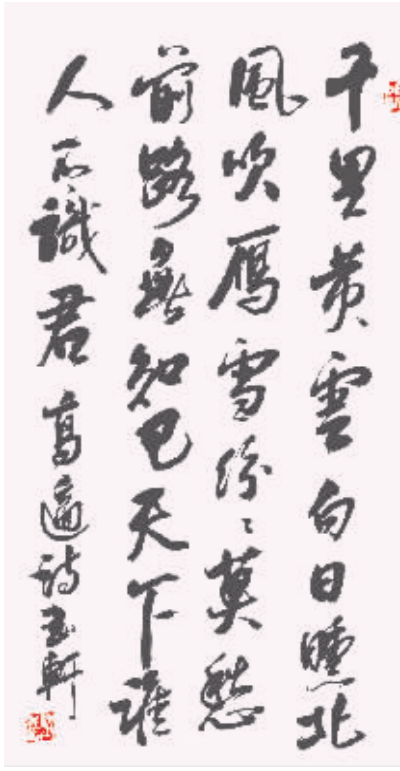 千里黄雲白日曛北
風吹鴈雪紛〻莫愁
前路無知己天下誰
人不識君 高適詩 玉軒